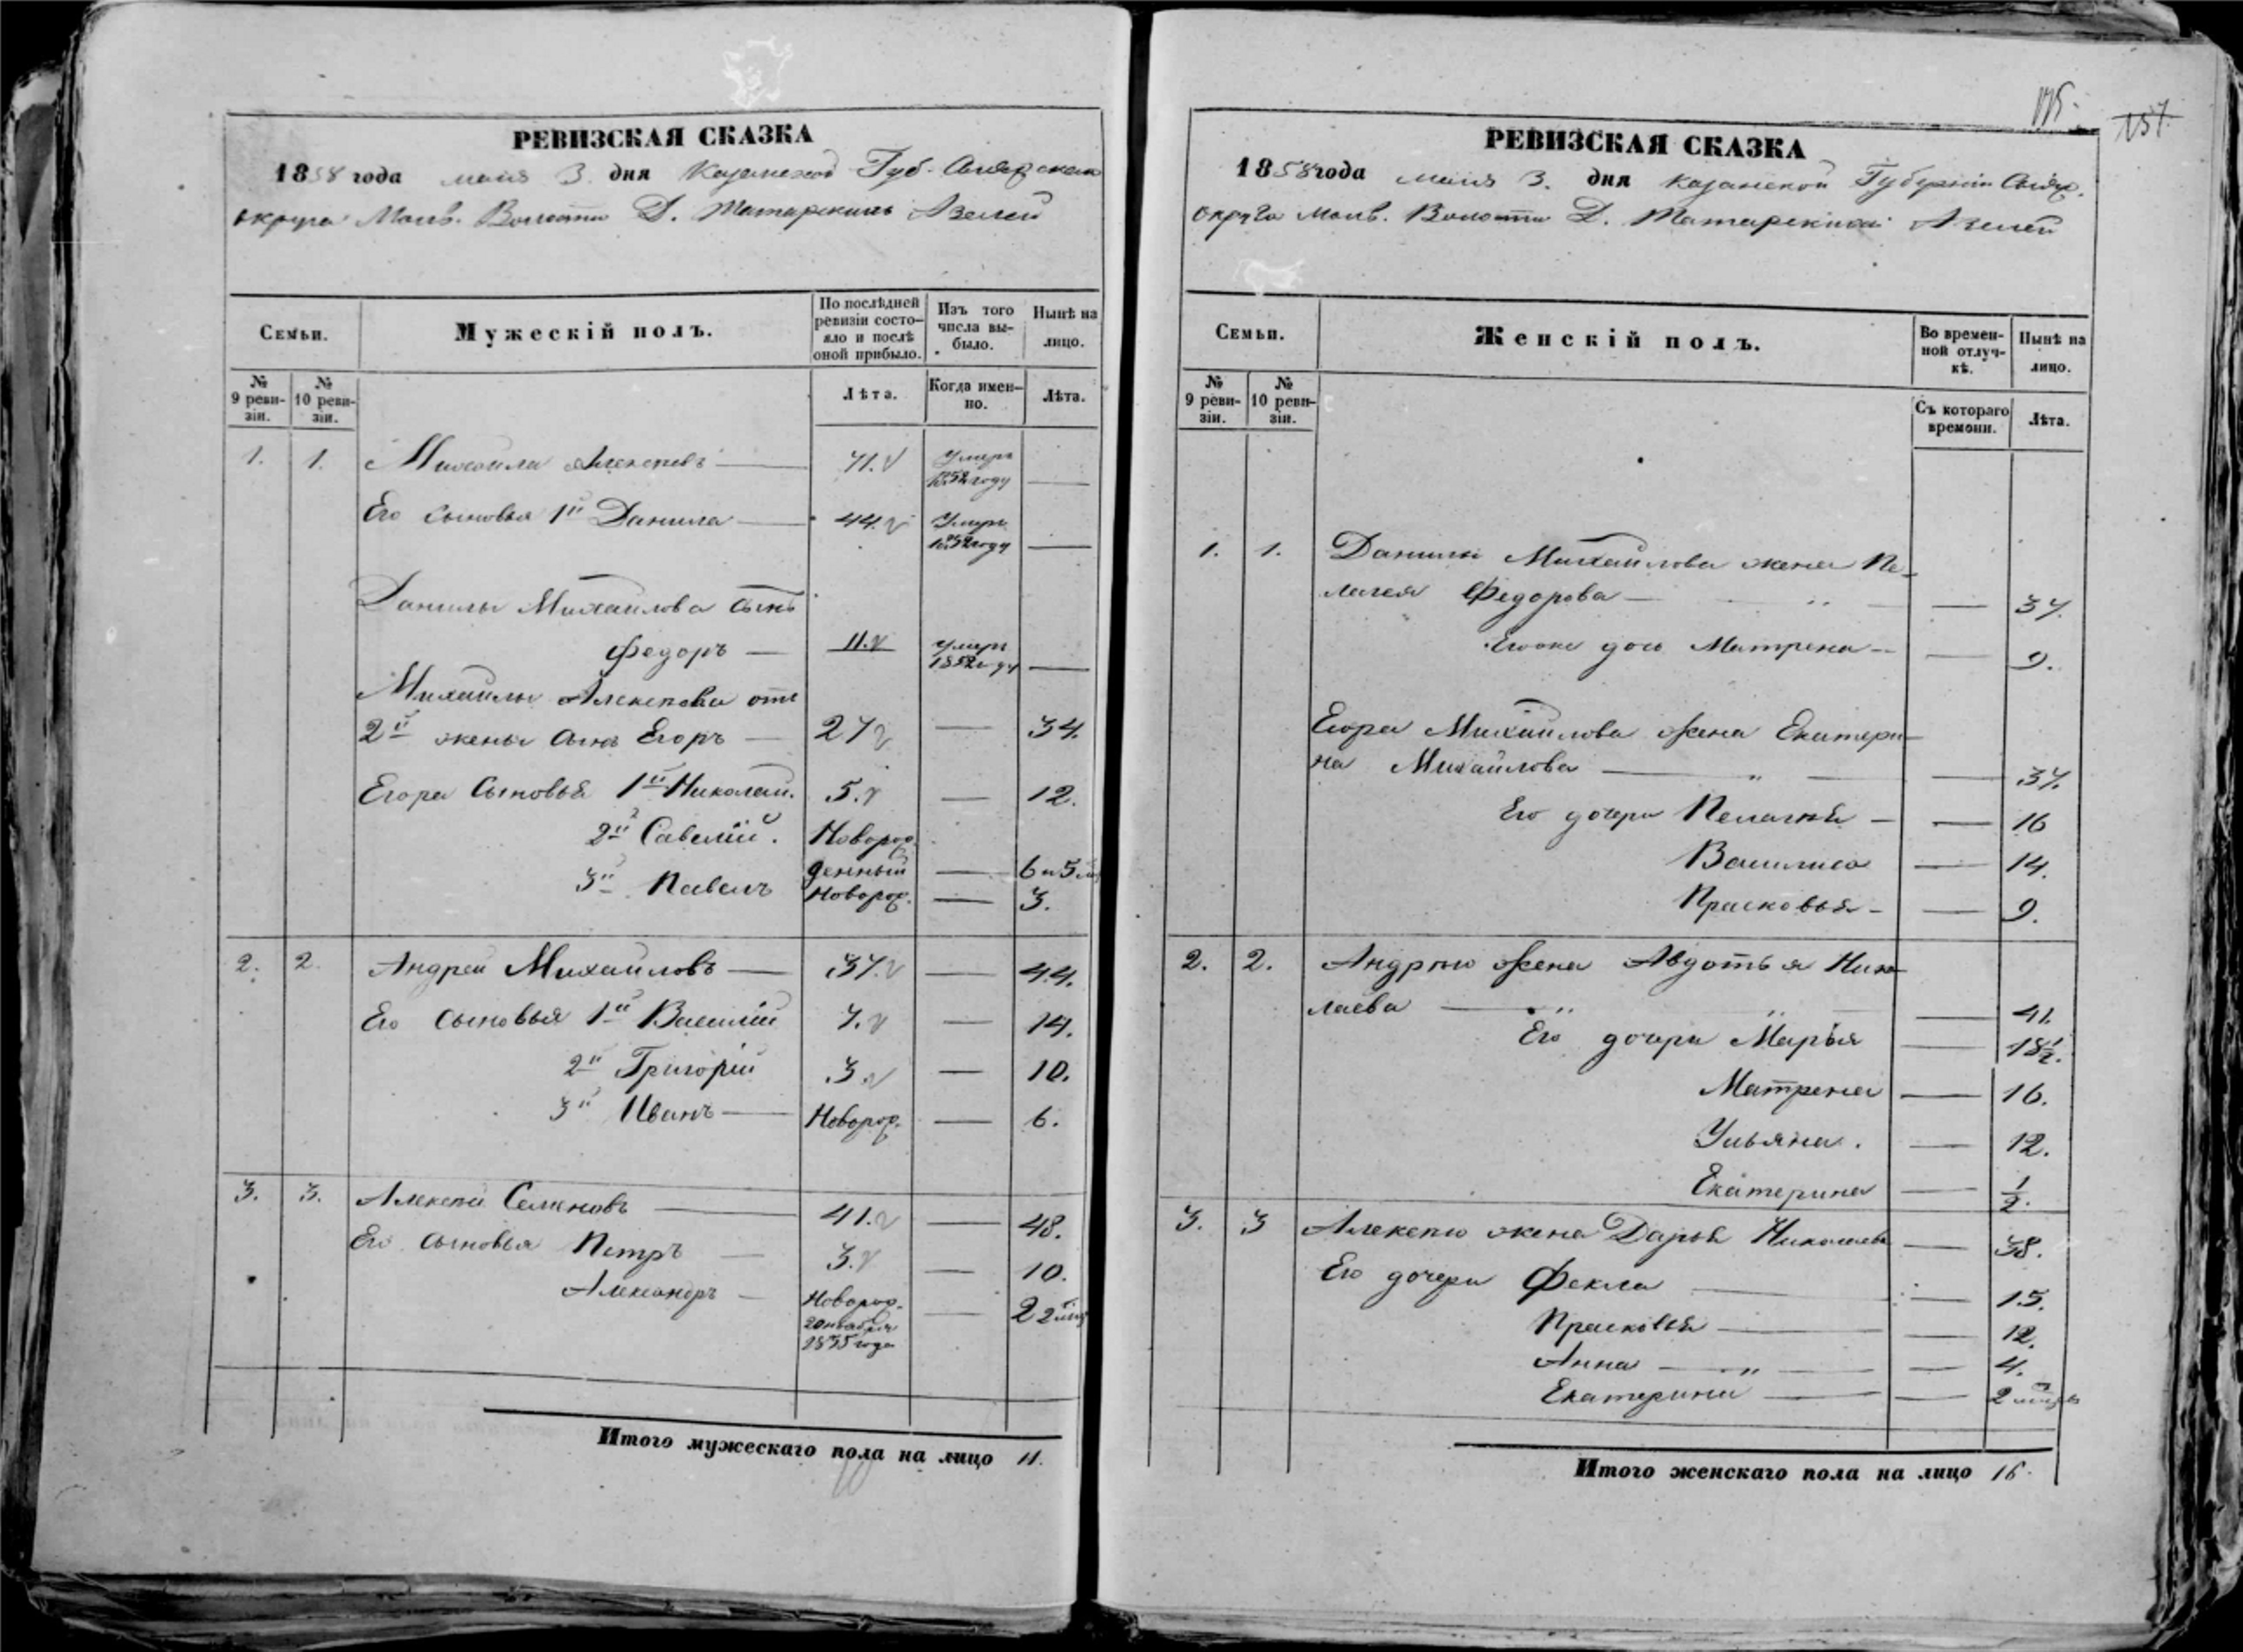 РЕВИЗСКАЯ СКАЗКА
1858 года мая 3. дня Казанской Губ.
округа Волости Д. Татарскихъ Азелей
Семьи.
Мужескій полъ.
По послѣдней ревизіи состо-
яло и послѣ
оной прибыло.
Изъ того
числа вы-
было.
Нынѣ на
лицо.
№
9 реви-
зіи.
№
10 реви-
зіи.
Лѣта.
Когда имен-
но.
Лѣта.
1. 1. Михаила Алексѣевъ — 71. Умеръ 1852 году —
Его сыновья 1й Данила — 44. Умеръ 1852 году —
Данилы Михайлова сынъ
Федоръ — 11. Умеръ 1852 году —
Михайлы Алексѣева отъ
2й жены сынъ Егоръ — 27 — 34.
Егора сыновья 1й Николай. 5. — 12.
2й Савелій. Новорож
денный — 6 и 5 м
3й Павелъ Новорож. — 3.
2. 2. Андрей Михайловъ — 37. — 44.
Его сыновья 1й Василій 7. — 14.
2й Григорій 3. — 10.
3й Иванъ — Новорож. — 6.
3. 3. Алексѣй Семеновъ — 41. — 48.
Его сыновья Петръ — 3. — 10.
Александръ — Новорож. — 2 2 мѣс
1855 года
Итого мужескаго пола на лицо 11.
175.
157.
РЕВИЗСКАЯ СКАЗКА
1858 года мая 3. дня Казанской Губерніи
округа Волости Д. Татарскихъ Азелей
Семьи.
Женскій полъ.
Во времен-
ной отлуч-
кѣ.
Нынѣ на
лицо.
№
9 реви-
зіи.
№
10 реви-
зіи.
Съ котораго
времони.
Лѣта.
1. 1. Данилы Михайлова жена Пе-
лагея Федорова — — 37.
Егоже дочь Матрена — — 9.
Егора Михайлова жена Екатери-
на Михайлова — — 37.
Его дочери Пелагея — — 16
Василиса — 14.
Прасковья — — 9.
2. 2. Андрѣю жена Авдотья Нико-
лаева — — 41.
Его дочери Марья — 18½.
Матрена — 16.
Ульяна. — 12.
Екатерина — ½.
3. 3 Алексѣю жена Дарья Николаева — 38.
Его дочери Фекла — — 15.
Прасковья — — 12.
Анна — — 4.
Екатерина — — 2 мѣсяц
Итого женскаго пола на лицо 16.